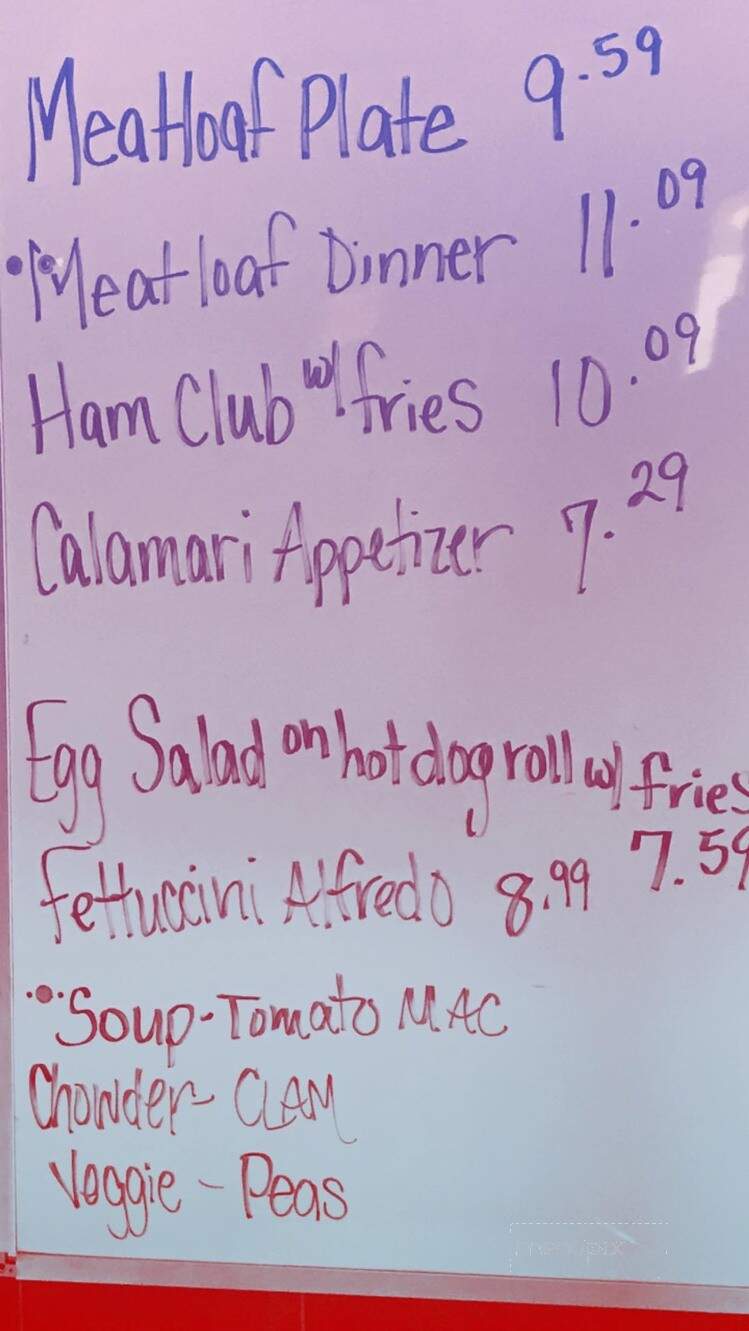 Meatloaf Plate 9.59
• Meatloaf Dinner 11.09
Ham Club w/ fries 10.09
Calamari Appetizer 7.29
Egg Salad on hot dog roll w/ fries
7.59
Fettuccini Alfredo 8.99
Soup - Tomato MAC
Chowder - CLAM
Veggie - Peas
menupix